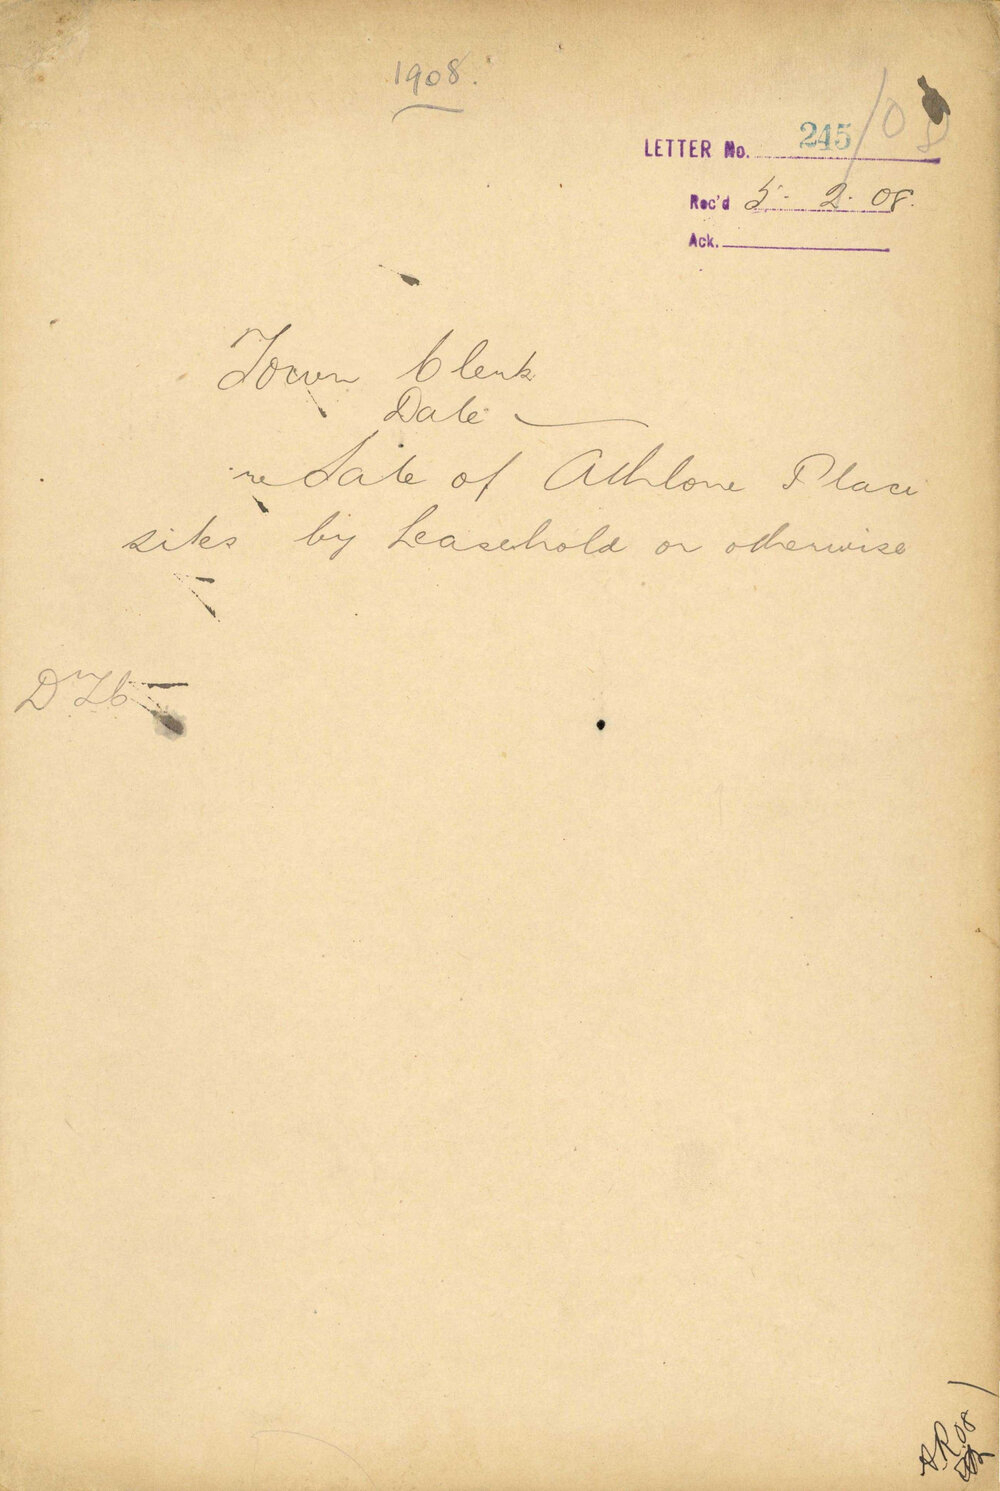 1908.
LETTER No. 245/08
Rec'd 5. 2. 08.
Ack.
Town Clerk
Date
re Sale of Athlone Place
sites by Leasehold or otherwise